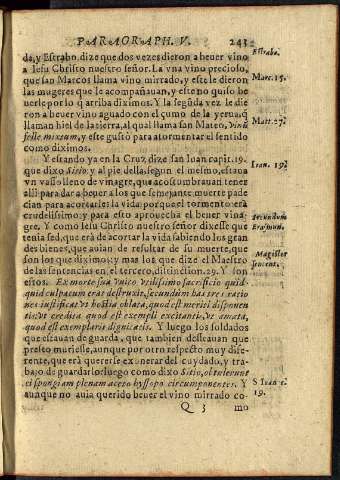 PARAGRAPH. V. 243
da, y Estrabo, dize que dos vezes dieron a beuer vino
a Iesu Christo nuestro señor. La vna vino precioso,
que san Marcos llama vino mirrado, y este le dieron
las mugeres que le acompañauan, y este no quiso be
uerle por lo q̃ arriba diximos. Y la segũda vez le die
ron a beuer vino aguado con el çumo de la yerua, q̃
llaman hiel de la tierra, al qual llama san Mateo, Vinũ
felle mixtum, y este gustò para atormentar el sentido
como diximos.
Y estando ya en la Cruz, dize san Iuan capit. 19.
que dixo Sitio, y al pie della, segun el mesmo, estaua
vn vasso lleno de vinagre, que acostumbrauan tener
alli para dar a beuer a los que semejante muerte pade
cian para acortarles la vida: porque el tormento erà
crudelissimo; y para esto aprouecha el beuer vina-
gre. Y como Iesu Christo nuestro señor dixesse que
tenia sed, que erà de acortar la vida sabiendo los gran
des bienes, que auian de resoltar de su muerte, que
son los que diximos; y mas los que dize el Maestro
de las sentencias en el tercero, distinction. 29. Y son
estos. Ex morte sua vnico vtilissimo sacrificio quid-
quid culparum erat destruxit, secundum has tres ratio
nes iustificat. vt hostia oblata, quod est meriti disponen
tis: vt credita quod est exempli excitantis, vt amata,
quod est exemplaris dignitatis. Y luego los soldados
que estauan de guarda, que tambien desseauan que
presto muriesse, aunque por otro respecto muy dife-
rente, que erà quererse exonerar del cuydado, y tra
bajo de guardarlo: luego como dixo Sitio, obtulerunt
ei spongiam plenam aceto hyssopo circumponentes. Y
aunque no auia querido beuer el vino mirrado co-
Q 3 mo
Estrabo.
Marc. 15.
Matt. 27.
Ioan. 19.
Secundum
Erasmum.
Magister
sentent.
S. Ioan c.
19.